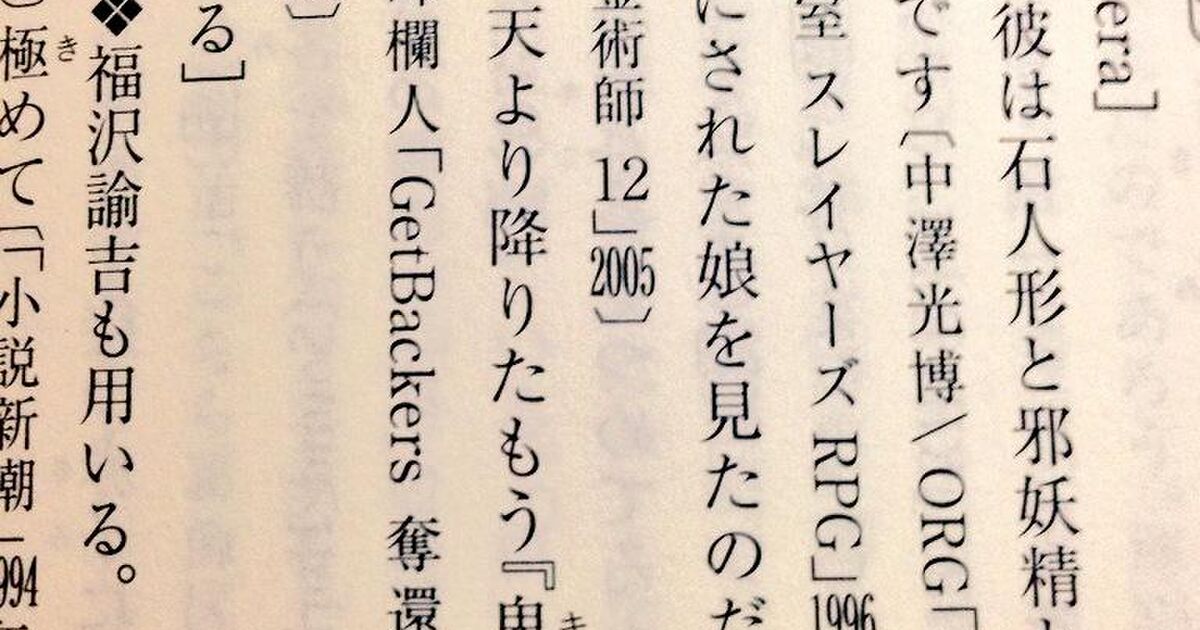 era]
彼は石人形と邪妖精
です〔中澤光博/ORG「
室 スレイヤーズ RPG」1996
にされた娘を見たのだ
金術師 12」2005〕
天より降りたもう『
欄人「GetBackers 奪還
〕
る]
❖福沢諭吉も用いる。
極めて〔「小説新潮」1994